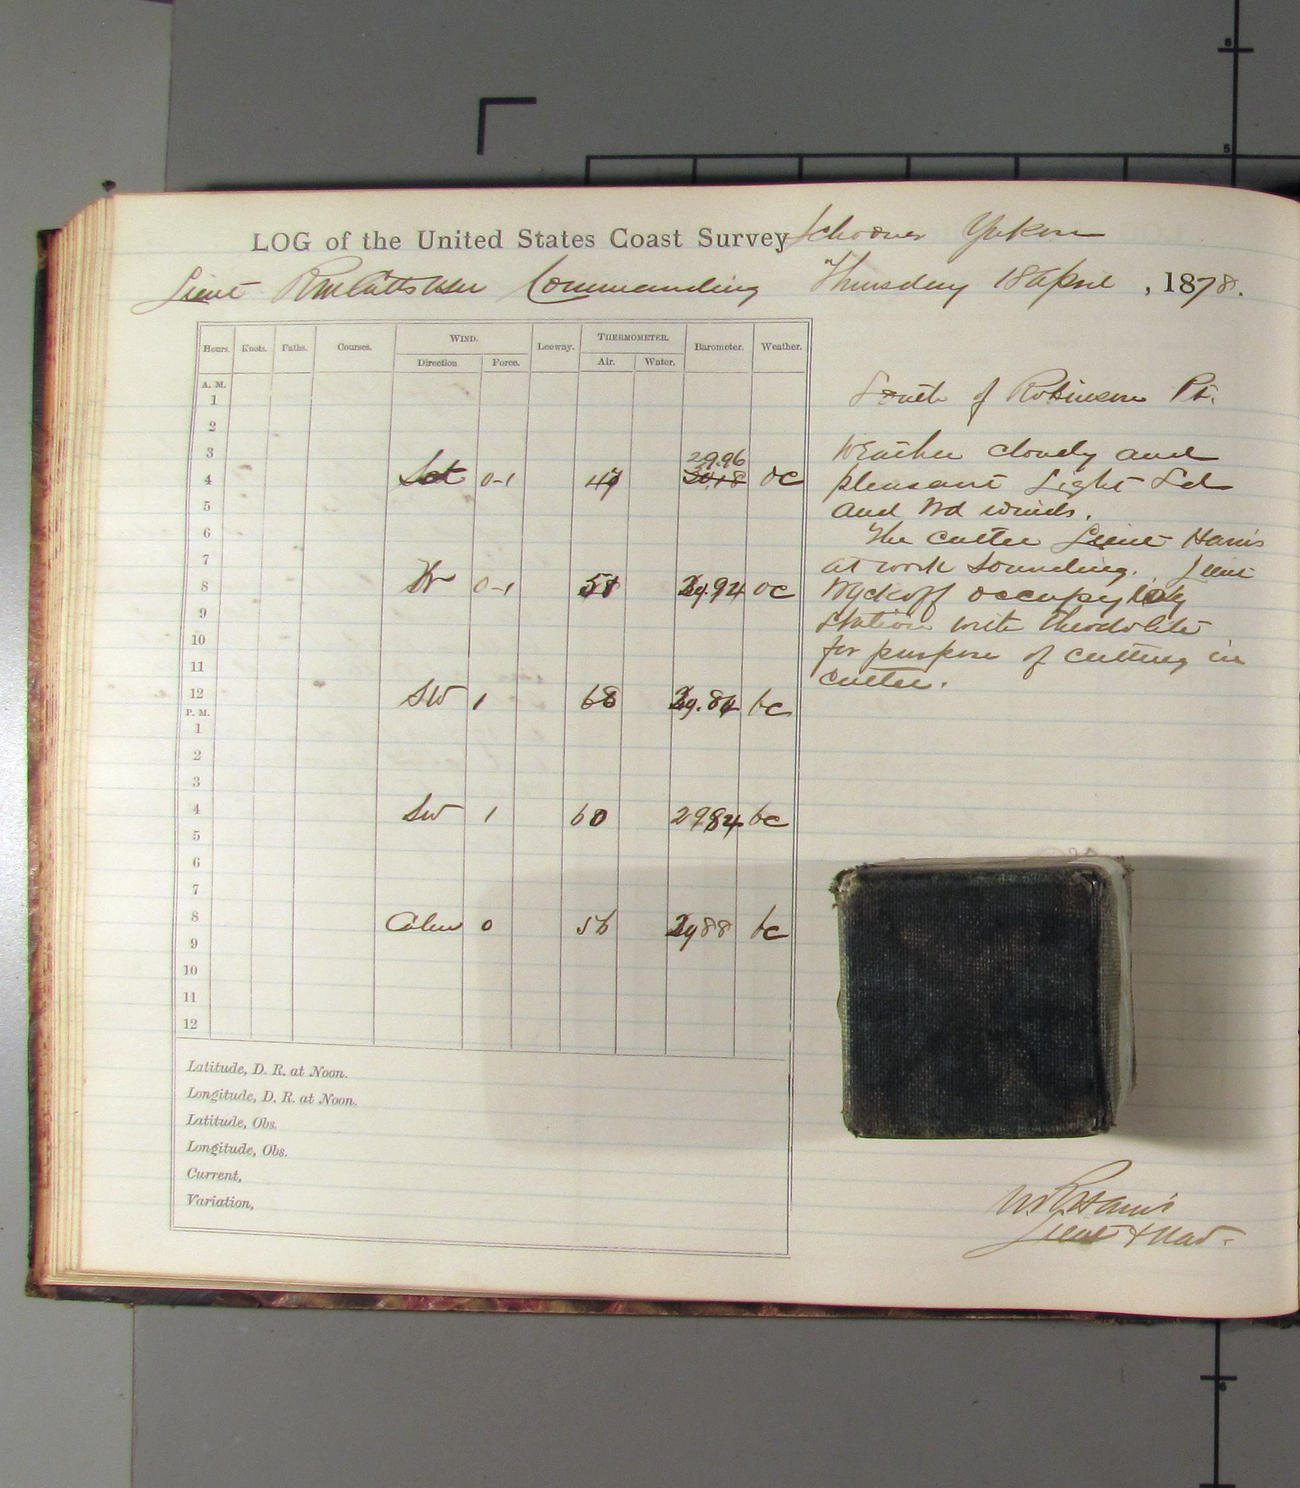 LOG of the United States Coast Survey Schooner Yukon
Lieut Commanding Thursday 18 April, 1878.
Hours. Knots. Faths. Courses. WIND. Leeway. THERMOMETER. Barometer. Weather.
Direction Force. Air. Water.
A. M.
1
2
3 29.96
4 0-1 47 30.18 oc
5
6
7
8 W 0-1 51 29.94 oc
9
10
11
12 SW 1 68 29.84 bc
P. M.
1
2
3
4 SW 1 60 2984 bc
5
6
7
8 Calm 0 56 2988 bc
9
10
11
12
Latitude, D. R. at Noon.
Longitude, D. R. at Noon.
Latitude, Obs.
Longitude, Obs.
Current,
Variation,
South of Robinson Pt.
Weather cloudy and
pleasant Light Sd
and Wd winds.
The cutter Lieut Harris
at work sounding. Lieut
Wyckoff occupying
Station with theodolite
for purpose of cutting in
cutter.
W. R. Harris
Lieut & Nav.
6
5
6